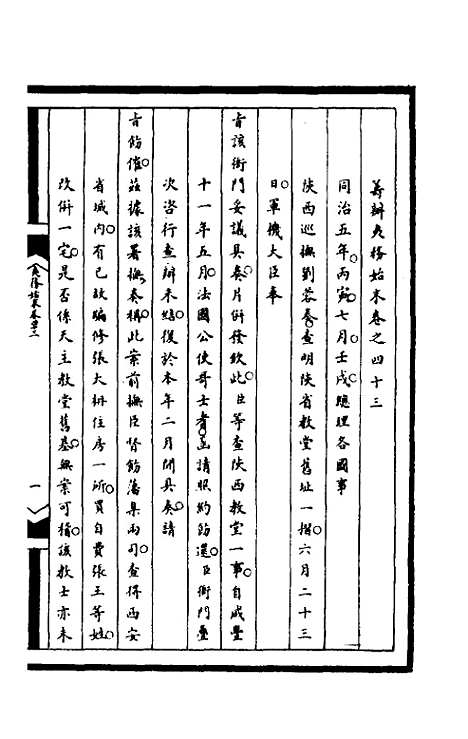 籌辦夷務始末卷之四十三
同治五年丙寅七月壬戌總理各國事
陝西巡撫劉蓉奏查明陝省教堂舊址一摺六月二十三
日軍機大臣奉
旨該衙門妥議具奏片併發欽此臣等查陝西教堂一事自咸豐
十一年五月法國公使哥士耆函請照約飭還臣衙門疊
次咨行查辦未結復於本年二月開具奏請
旨飭催茲據該署撫奏稱此案前撫臣督飭藩臬兩司查得西安
省城內有已故騙修張大枏住房一所買自費張王等姓
改併一宅是否係天主教堂舊基無案可稽該教士亦未
夷務始末卷四三
一